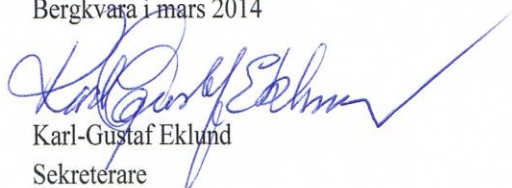 Bergkvara i mars 2014
Karl Gustaf Eklund
Karl-Gustaf Eklund
Sekreterare